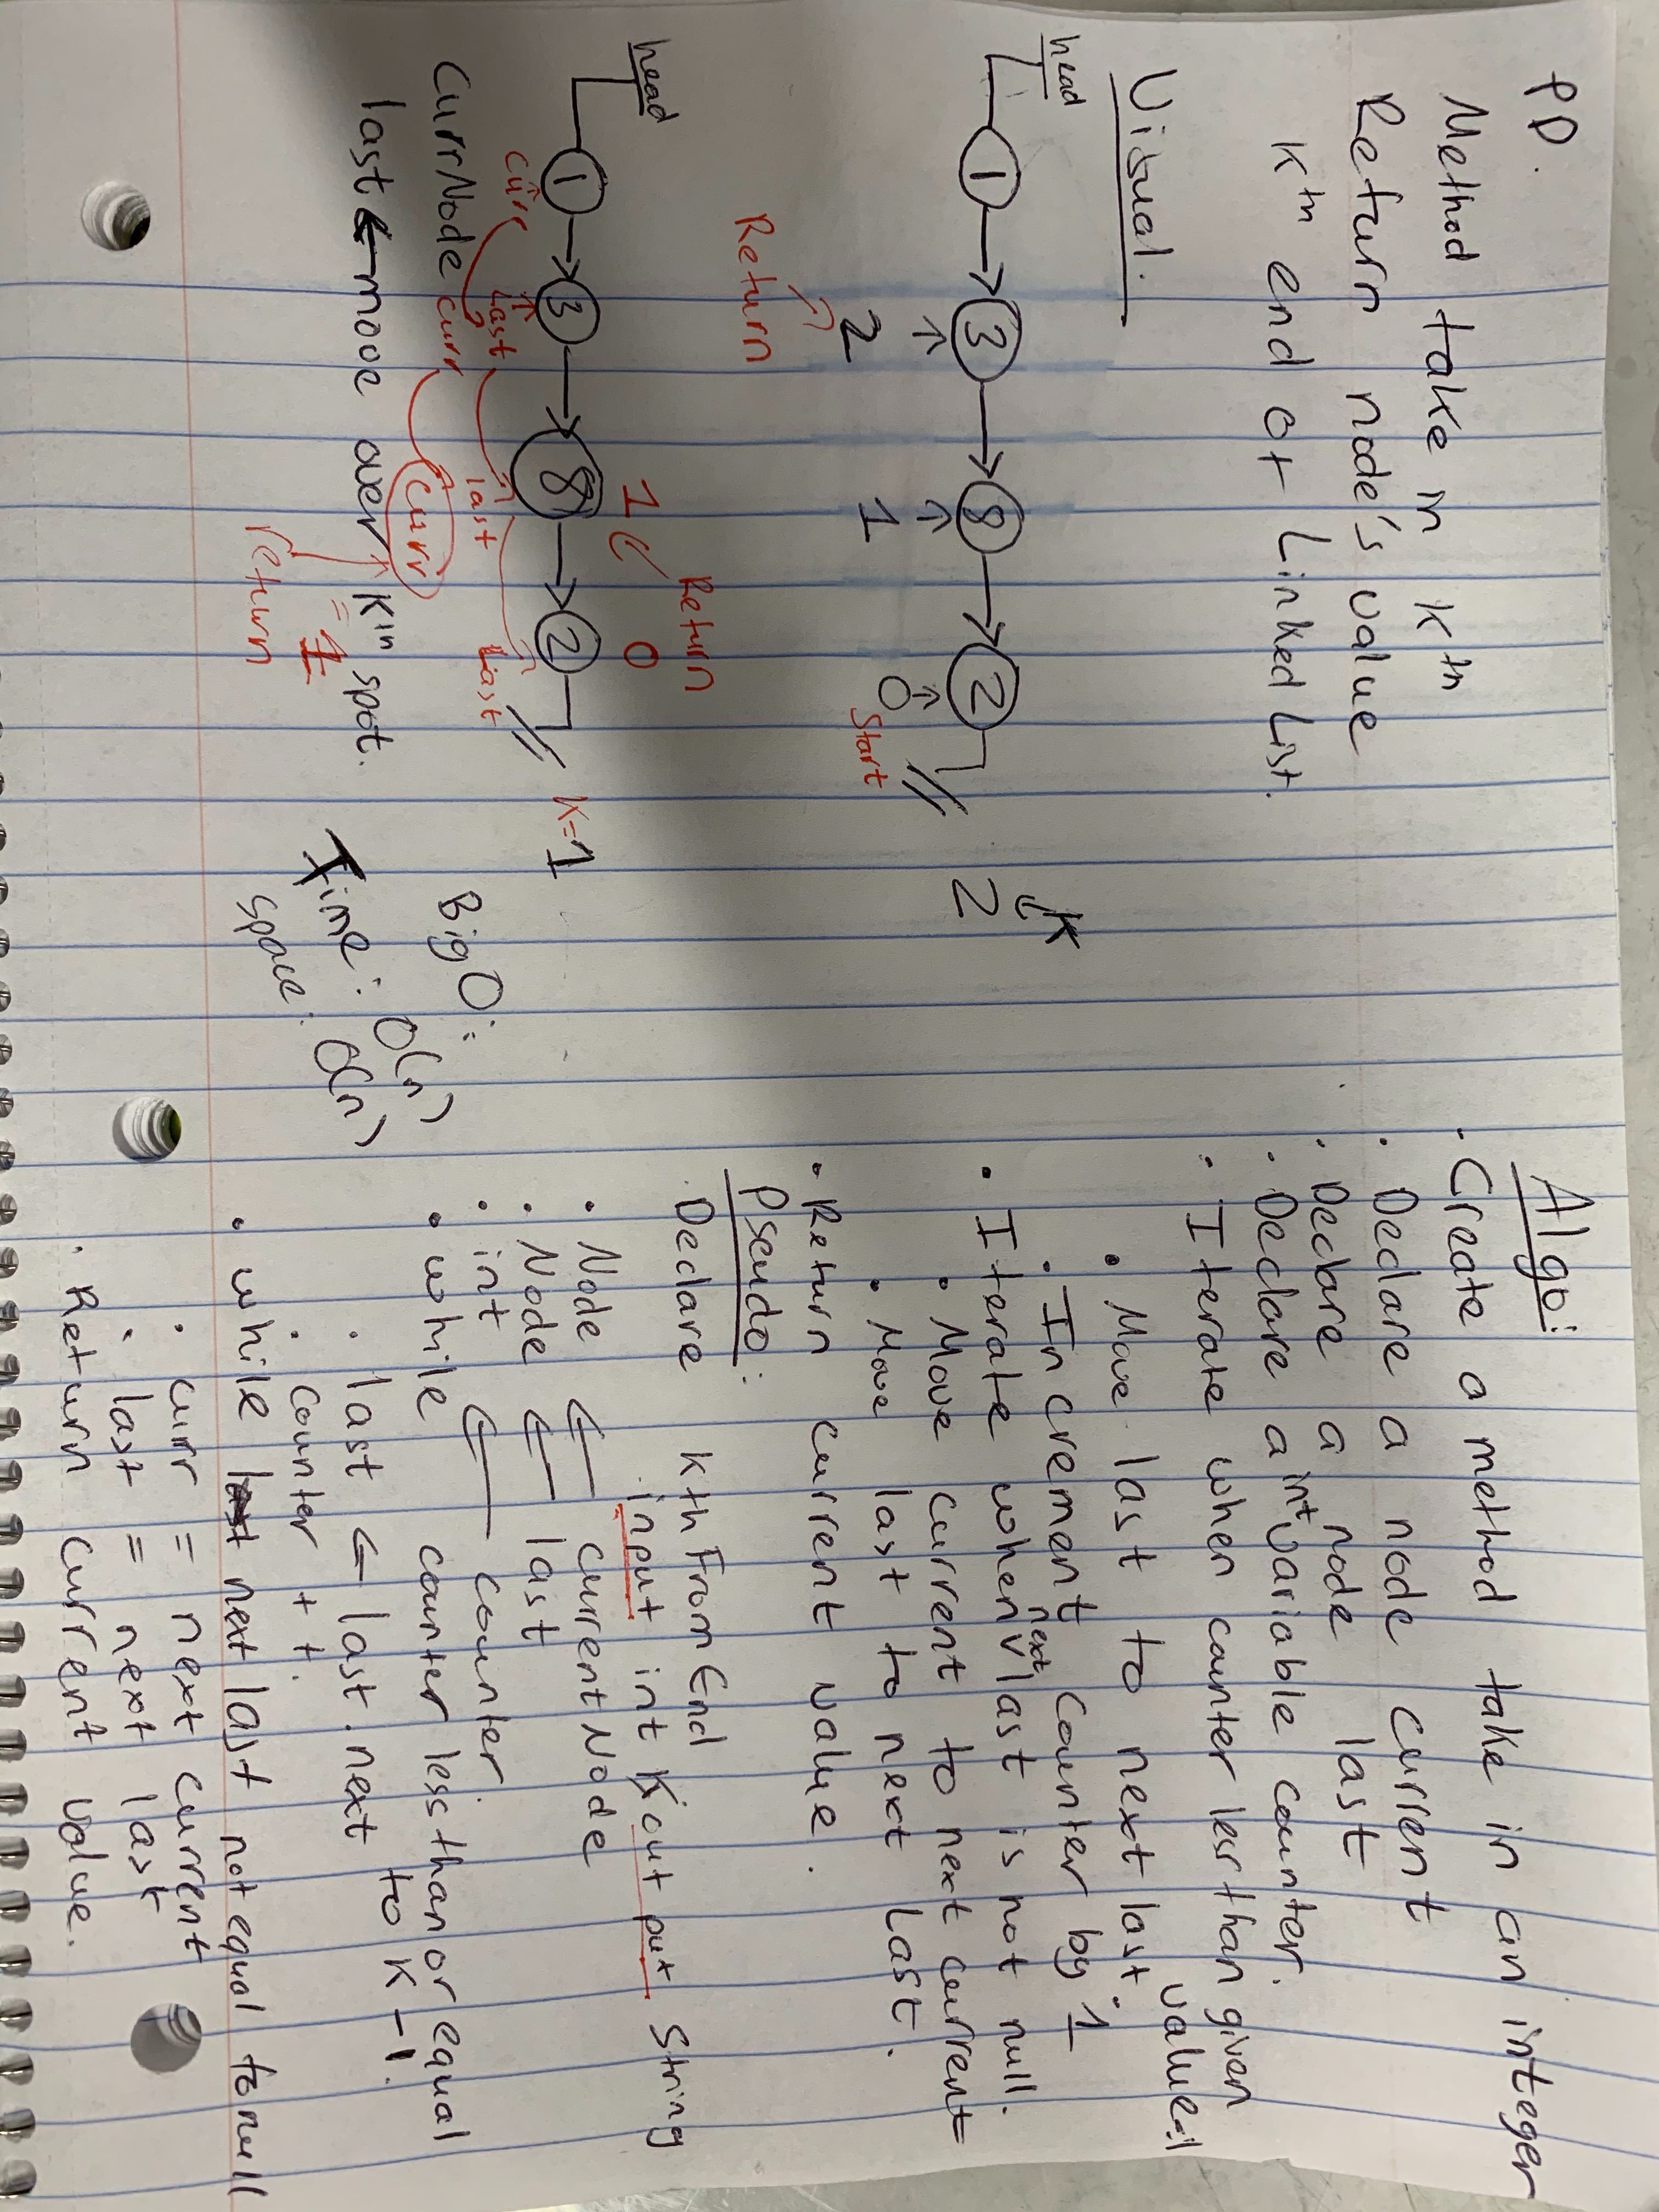 PD.
Method take in Kth
Return node's value
Kth end of Linked List.
Visual.
head
1 3 8 2
K
2
2 1 0
Start
Return
Return
1 0
head
1 3 8 2
K=1
Curr Last last Last
CurrNode curr Curr
last ← move over Kth spot.
= 1
return
Big O:
Time: O(n)
Space: O(n)
Algo:
Create a method take in an integer
Declare a node current
Declare a node last
Declare a int variable counter.
Iterate when counter less than given value-1
Move last to next last.
Increment counter by 1
Iterate when next last is not null.
Move current to next current
Move last to next Last.
Return current value.
Pseudo:
Declare KthFromEnd
input int K output String
Node ← currentNode
Node ← last
int ← counter
while counter less than or equal
to K-1.
last ← last.next
counter ++.
while next last not equal to null
curr = next current
last = next last
Return current value.